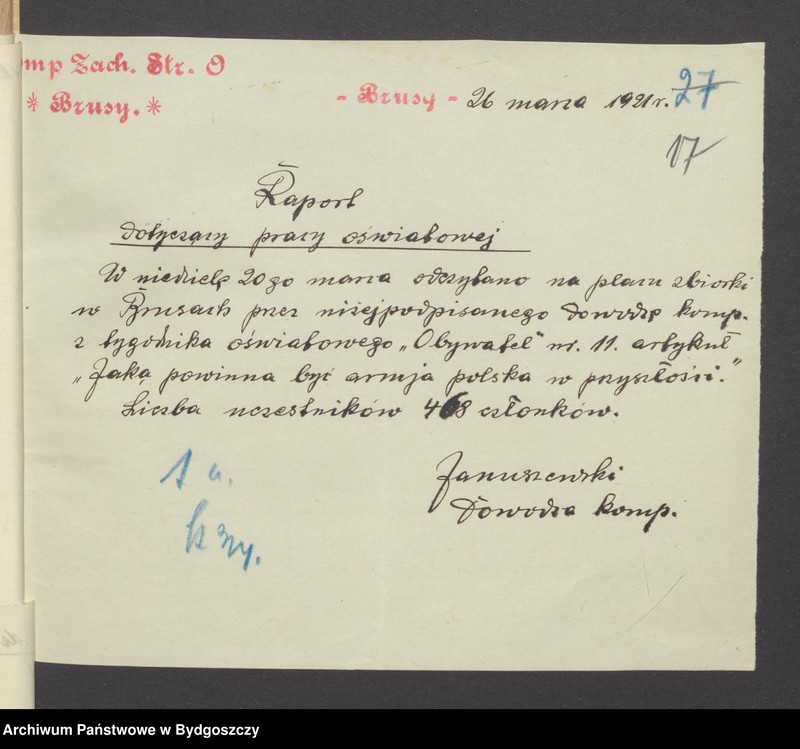 omp Zach. Str. O
* Brusy. *
- Brusy - 26 marca 1921 r. 27
17
Raport
dotyczący pracy oświatowej
W niedzielę 20go marca odczytano na placu zbiorki
w Brusach przez niżejpodpisanego dowodcę komp.
z tygodnika oświatowego „Obywatel" nr. 11. artykuł
„Jaką powinna być armja polska w przyszłości."
Liczba uczestników 468 członków.
Januszewski
Dowodca komp.
Archiwum Państwowe w Bydgoszczy